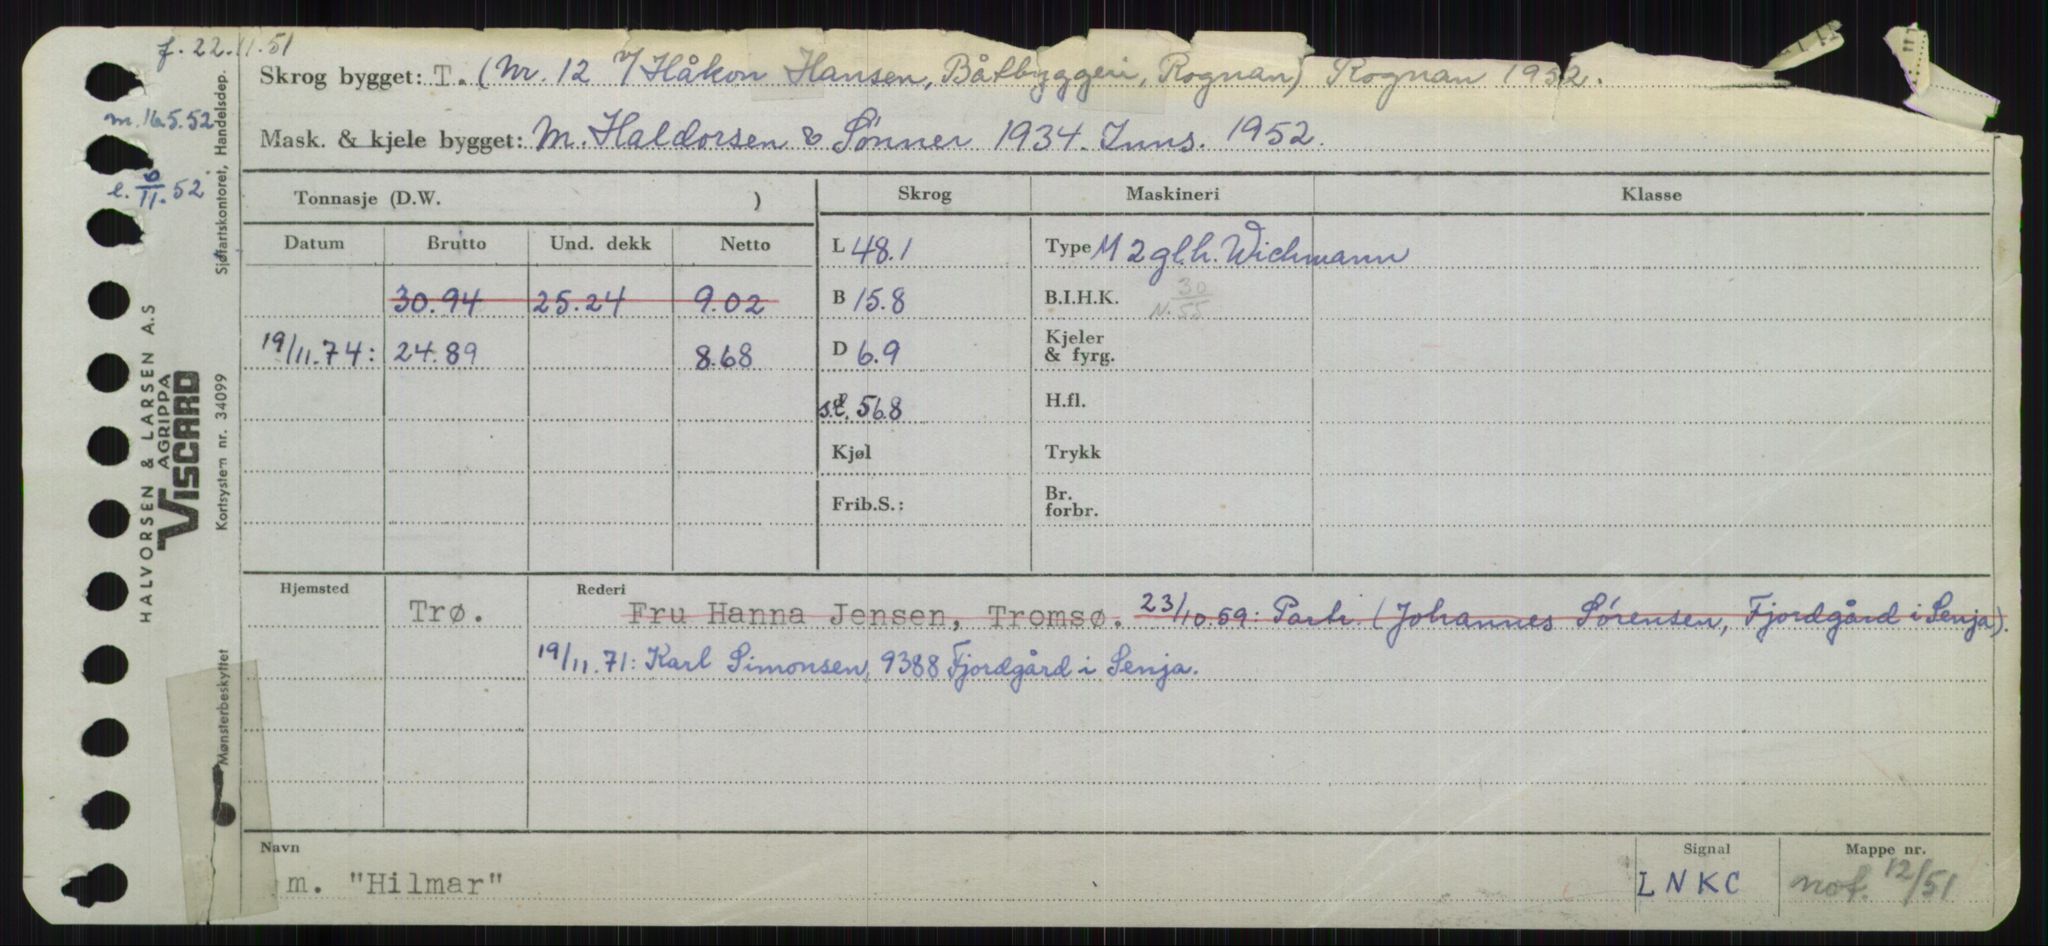 f. 22.11.51
Skrog bygget: T. (Nr. 12 v/ Håkon Hansen, Båtbyggeri, Rognan) Rognan 1952.
m. 16.5.52
Mask. & kjele bygget: M. Haldorsen & Sønner 1934. Inns. 1952.
e. 6/11.52
Tonnasje (D.W. ) Skrog Maskineri Klasse
Datum Brutto Und. dekk Netto L 48.1 Type M 2 gl.h. Wichmann
30.94 25.24 9.02 B 15.8 B.I.H.K. 30
N. 55
19/11.74: 24.89 8.68 D 6.9 Kjeler
& fyrg.
s.l. 56.8 H.fl.
Kjøl Trykk
Frib.S.: Br.
forbr.
Hjemsted Rederi
Trø. Fru Hanna Jensen, Tromsø. 23/10.59: Partr. (Johannes Sørensen, Fjordgård i Senja).
19/11.71: Karl Simonsen, 9388 Fjordgård i Senja.
Navn Signal Mappe nr.
m. "Hilmar" LNKC not. 12/51
HALVORSEN & LARSEN A.S
AGRIPPA
VISCARD
Kortsystem nr. 34099
Sjøfartskontoret, Handelsdep.
Mønsterbeskyttet